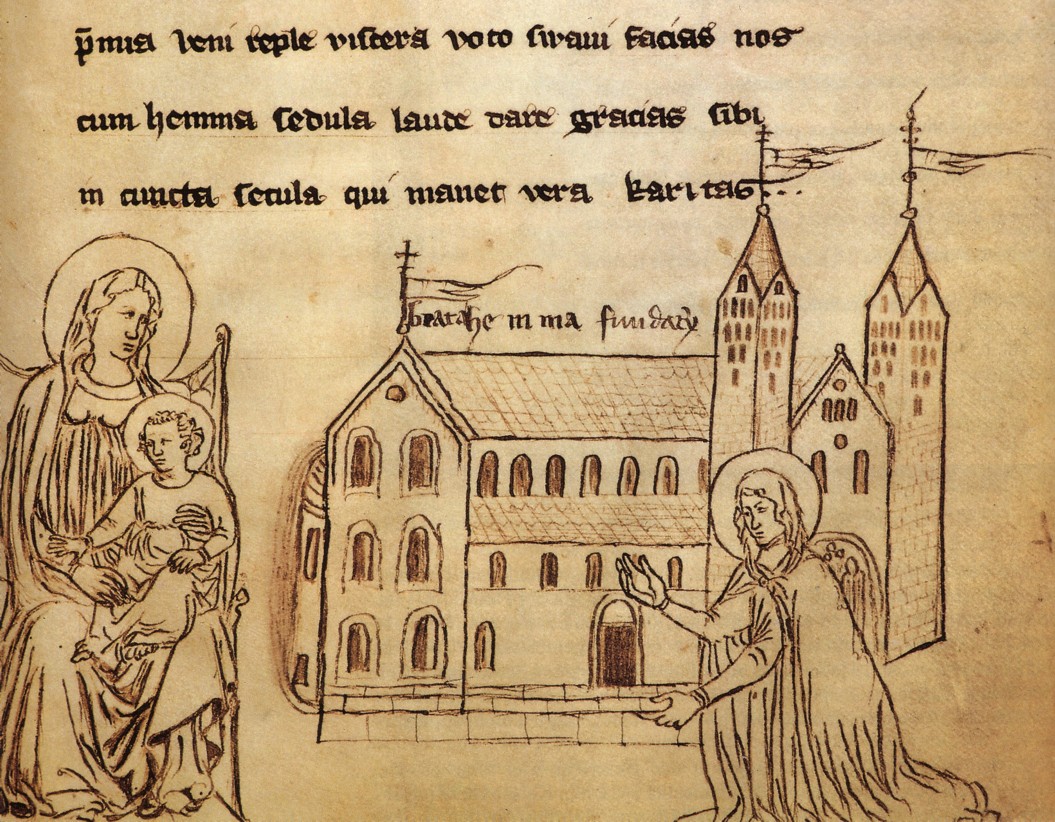 p̄mia veni reple viscera voto swaui facias nos
cum hemma sedula laude dare gracias sibi
in cuncta secula qui manet vera karitas...
beata hemma